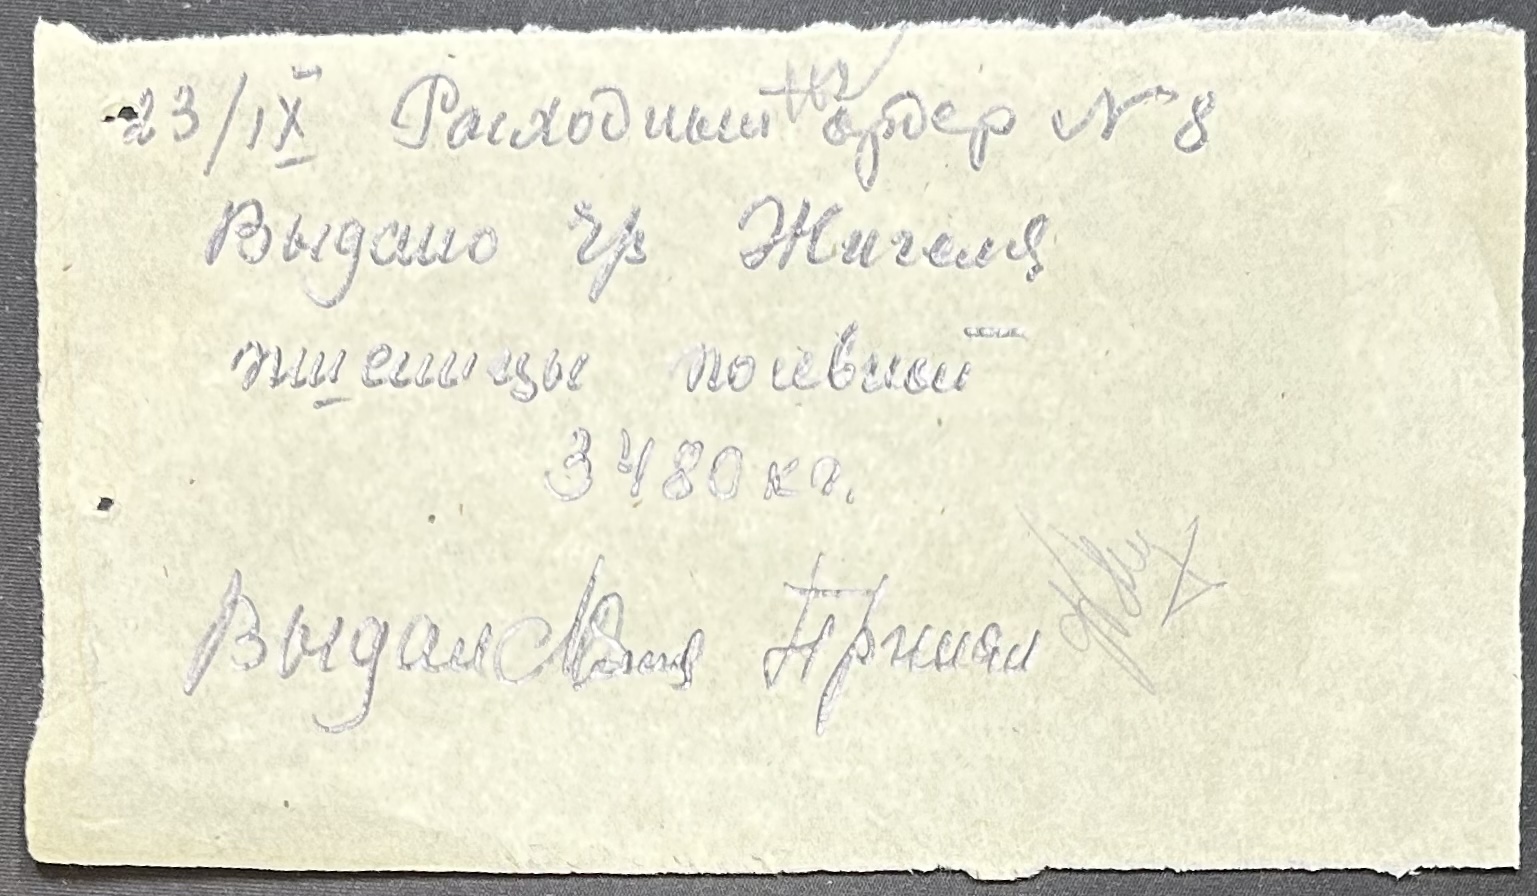 23/IX Расходный ордер № 8
Выдано гр Жигеля
пшеницы посевной
3480 кг.
Выдал Принял